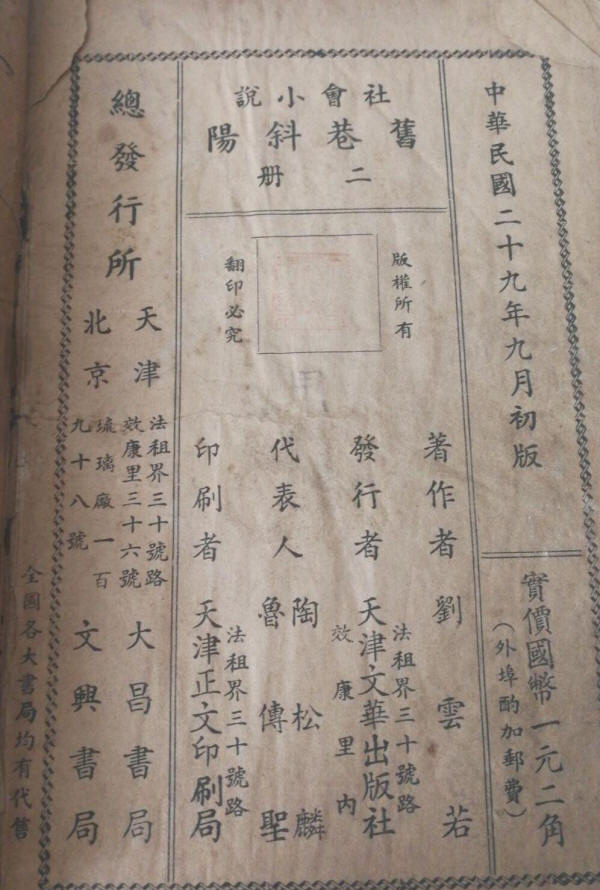 中華民國二十九年九月初版
實價國幣一元二角
（外埠酌加郵費）
社會小說
舊巷斜陽
二册
版權所有
翻印必究
著作者 劉雲若
發行者 天津文華出版社
法租界三十號路
效康里內
代表人 陶松麟
魯傳聖
印刷者 天津正文印刷局
法租界三十號路
總發行所
天津 法租界三十號路
效康里三十六號
大昌書局
北京 琉璃廠一百
九十八號
文興書局
全國各大書局均有代售